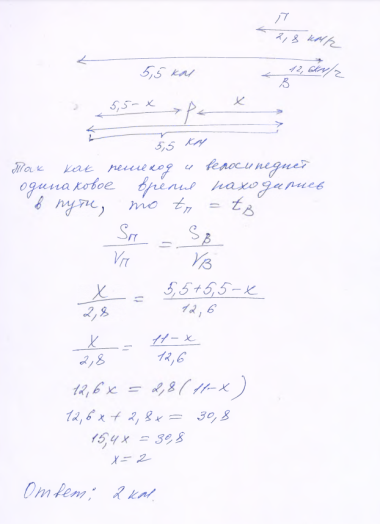 П
2,8 км/ч
5,5 км
12,6км/ч
В
5,5-х
х
5,5 км
Так как пешеход и велосипедист
одинаковое время находились
в пути, то tп = tв
Sп/Vп = Sв/Vв
х/2,8 = 5,5+5,5-х/12,6
х/2,8 = 11-х/12,6
12,6х = 2,8(11-х)
12,6х + 2,8х = 30,8
15,4х = 30,8
х = 2
Ответ: 2 км.